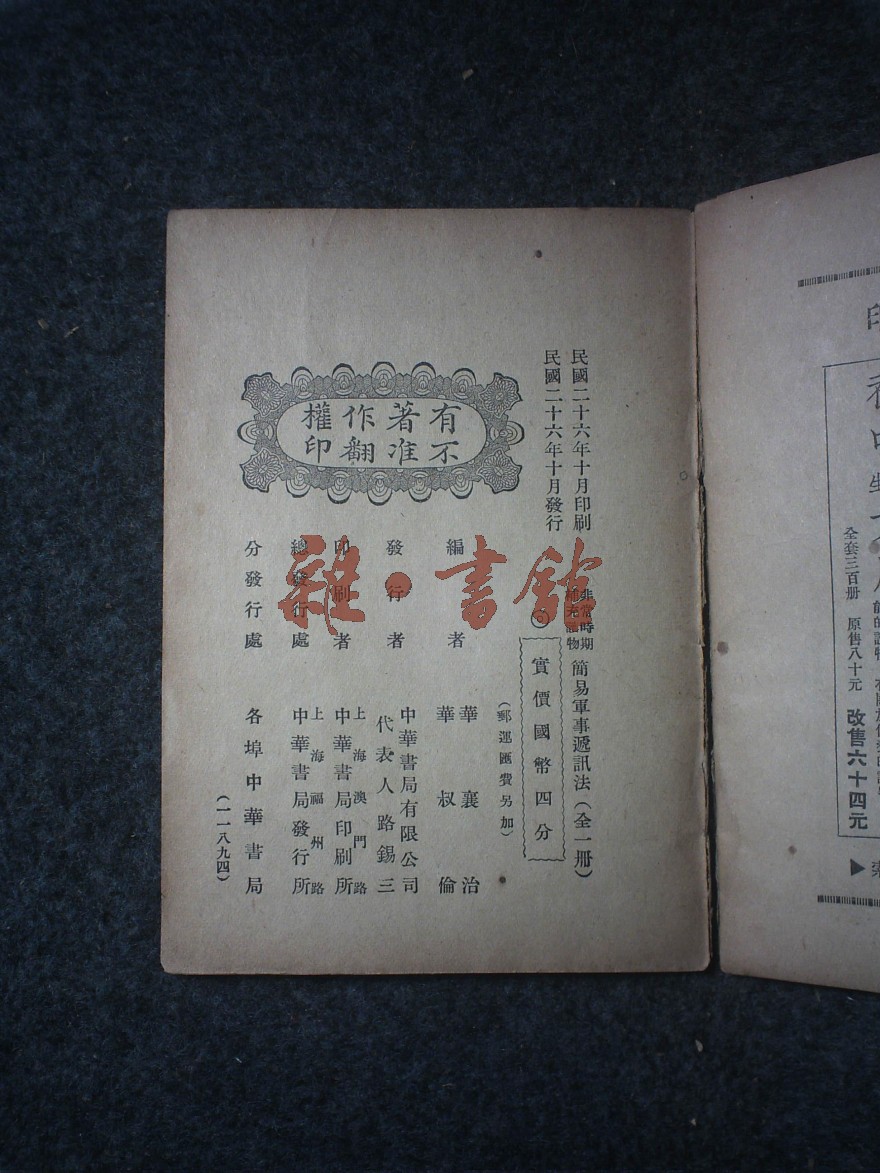 民國二十六年十月印刷
民國二十六年十月發行
非常時期
補充讀物
簡易軍事遞訊法(全一冊)
◎
實價國幣四分
(郵運匯費另加)
編者
華襄治
華叔倫
發行者
中華書局有限公司
代表人路錫三
印刷者
上海澳門路
中華書局印刷所
總發行處
上海福州路
中華書局發行所
分發行處
各埠中華書局
(一一八九四)
有著作權
不准翻印
雜·書館
全套三百册 原售八十元 改售六十四元